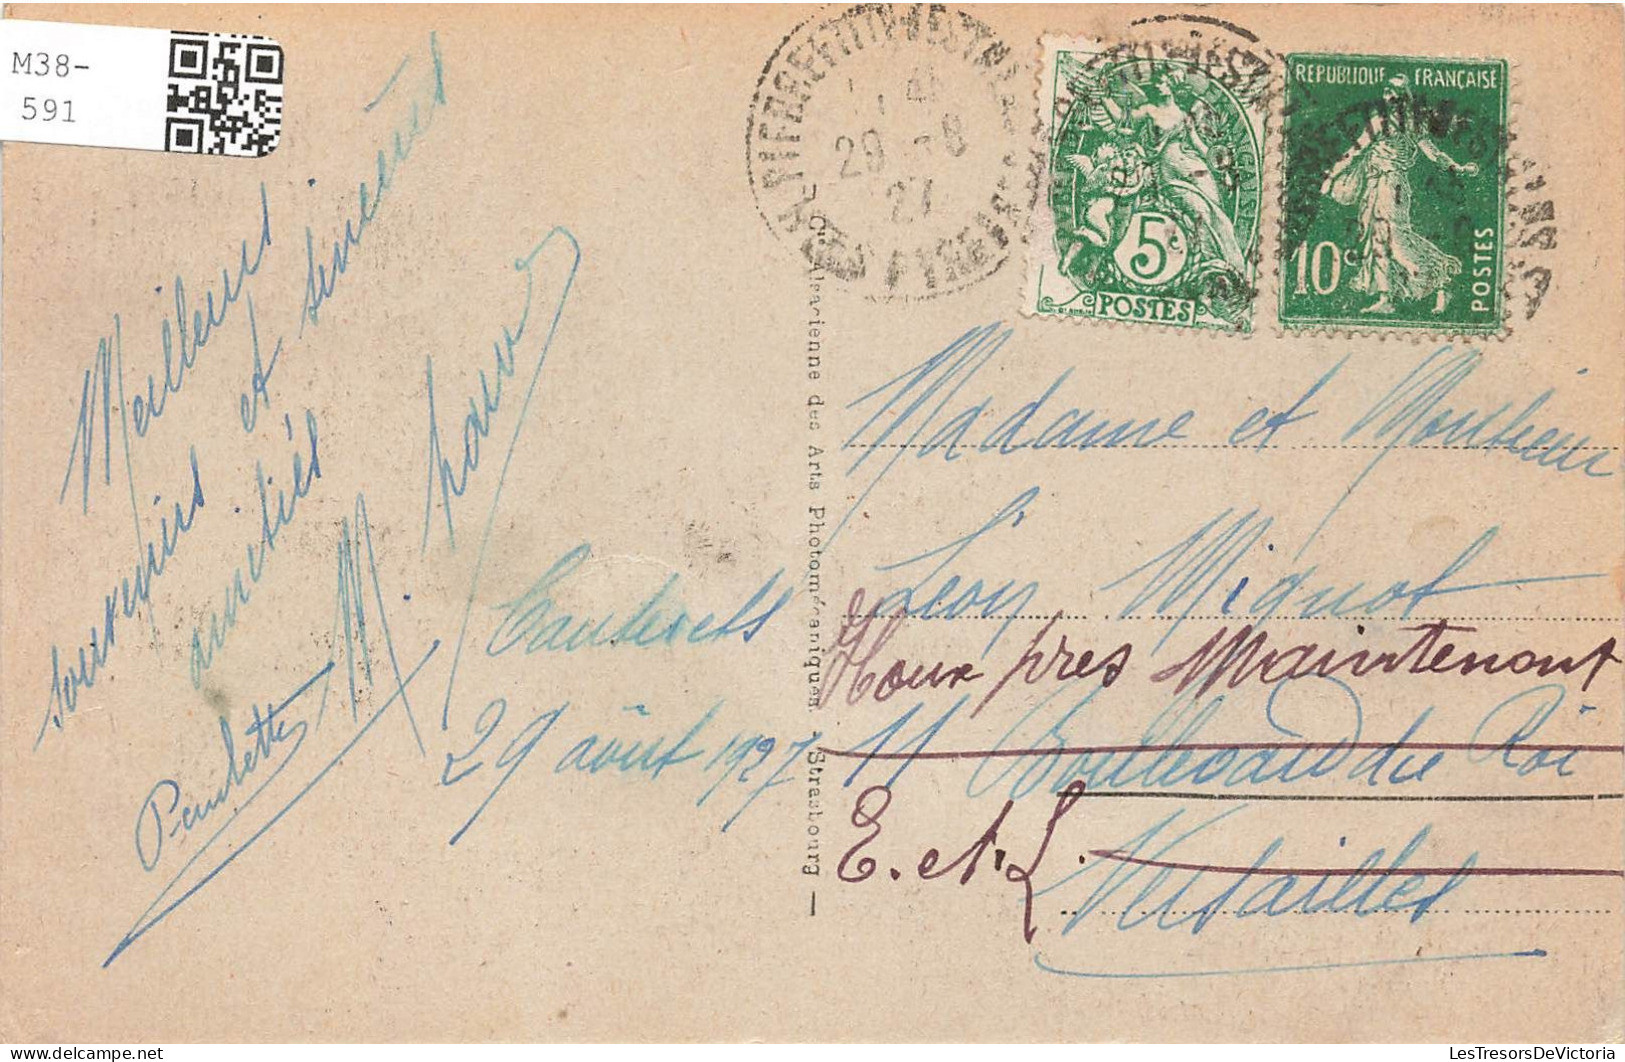 M38-
591
Meilleurs
et sincères
souvenirs
amitiés
Paulette
M.
Cauterets
29 août 1927
Cie Alsacienne des Arts Photomécaniques, Strasbourg —
PIERREFITTE-NESTALAS
29 -8
27
HTES PYRENEES
5c
POSTES
REPUBLIQUE FRANÇAISE
10c
POSTES
Madame et Monsieur
Léon Mignot
Houx près Maintenont
11 Boulevard du Roi
E. et L.
Versailles
LesTresorsDeVictoria